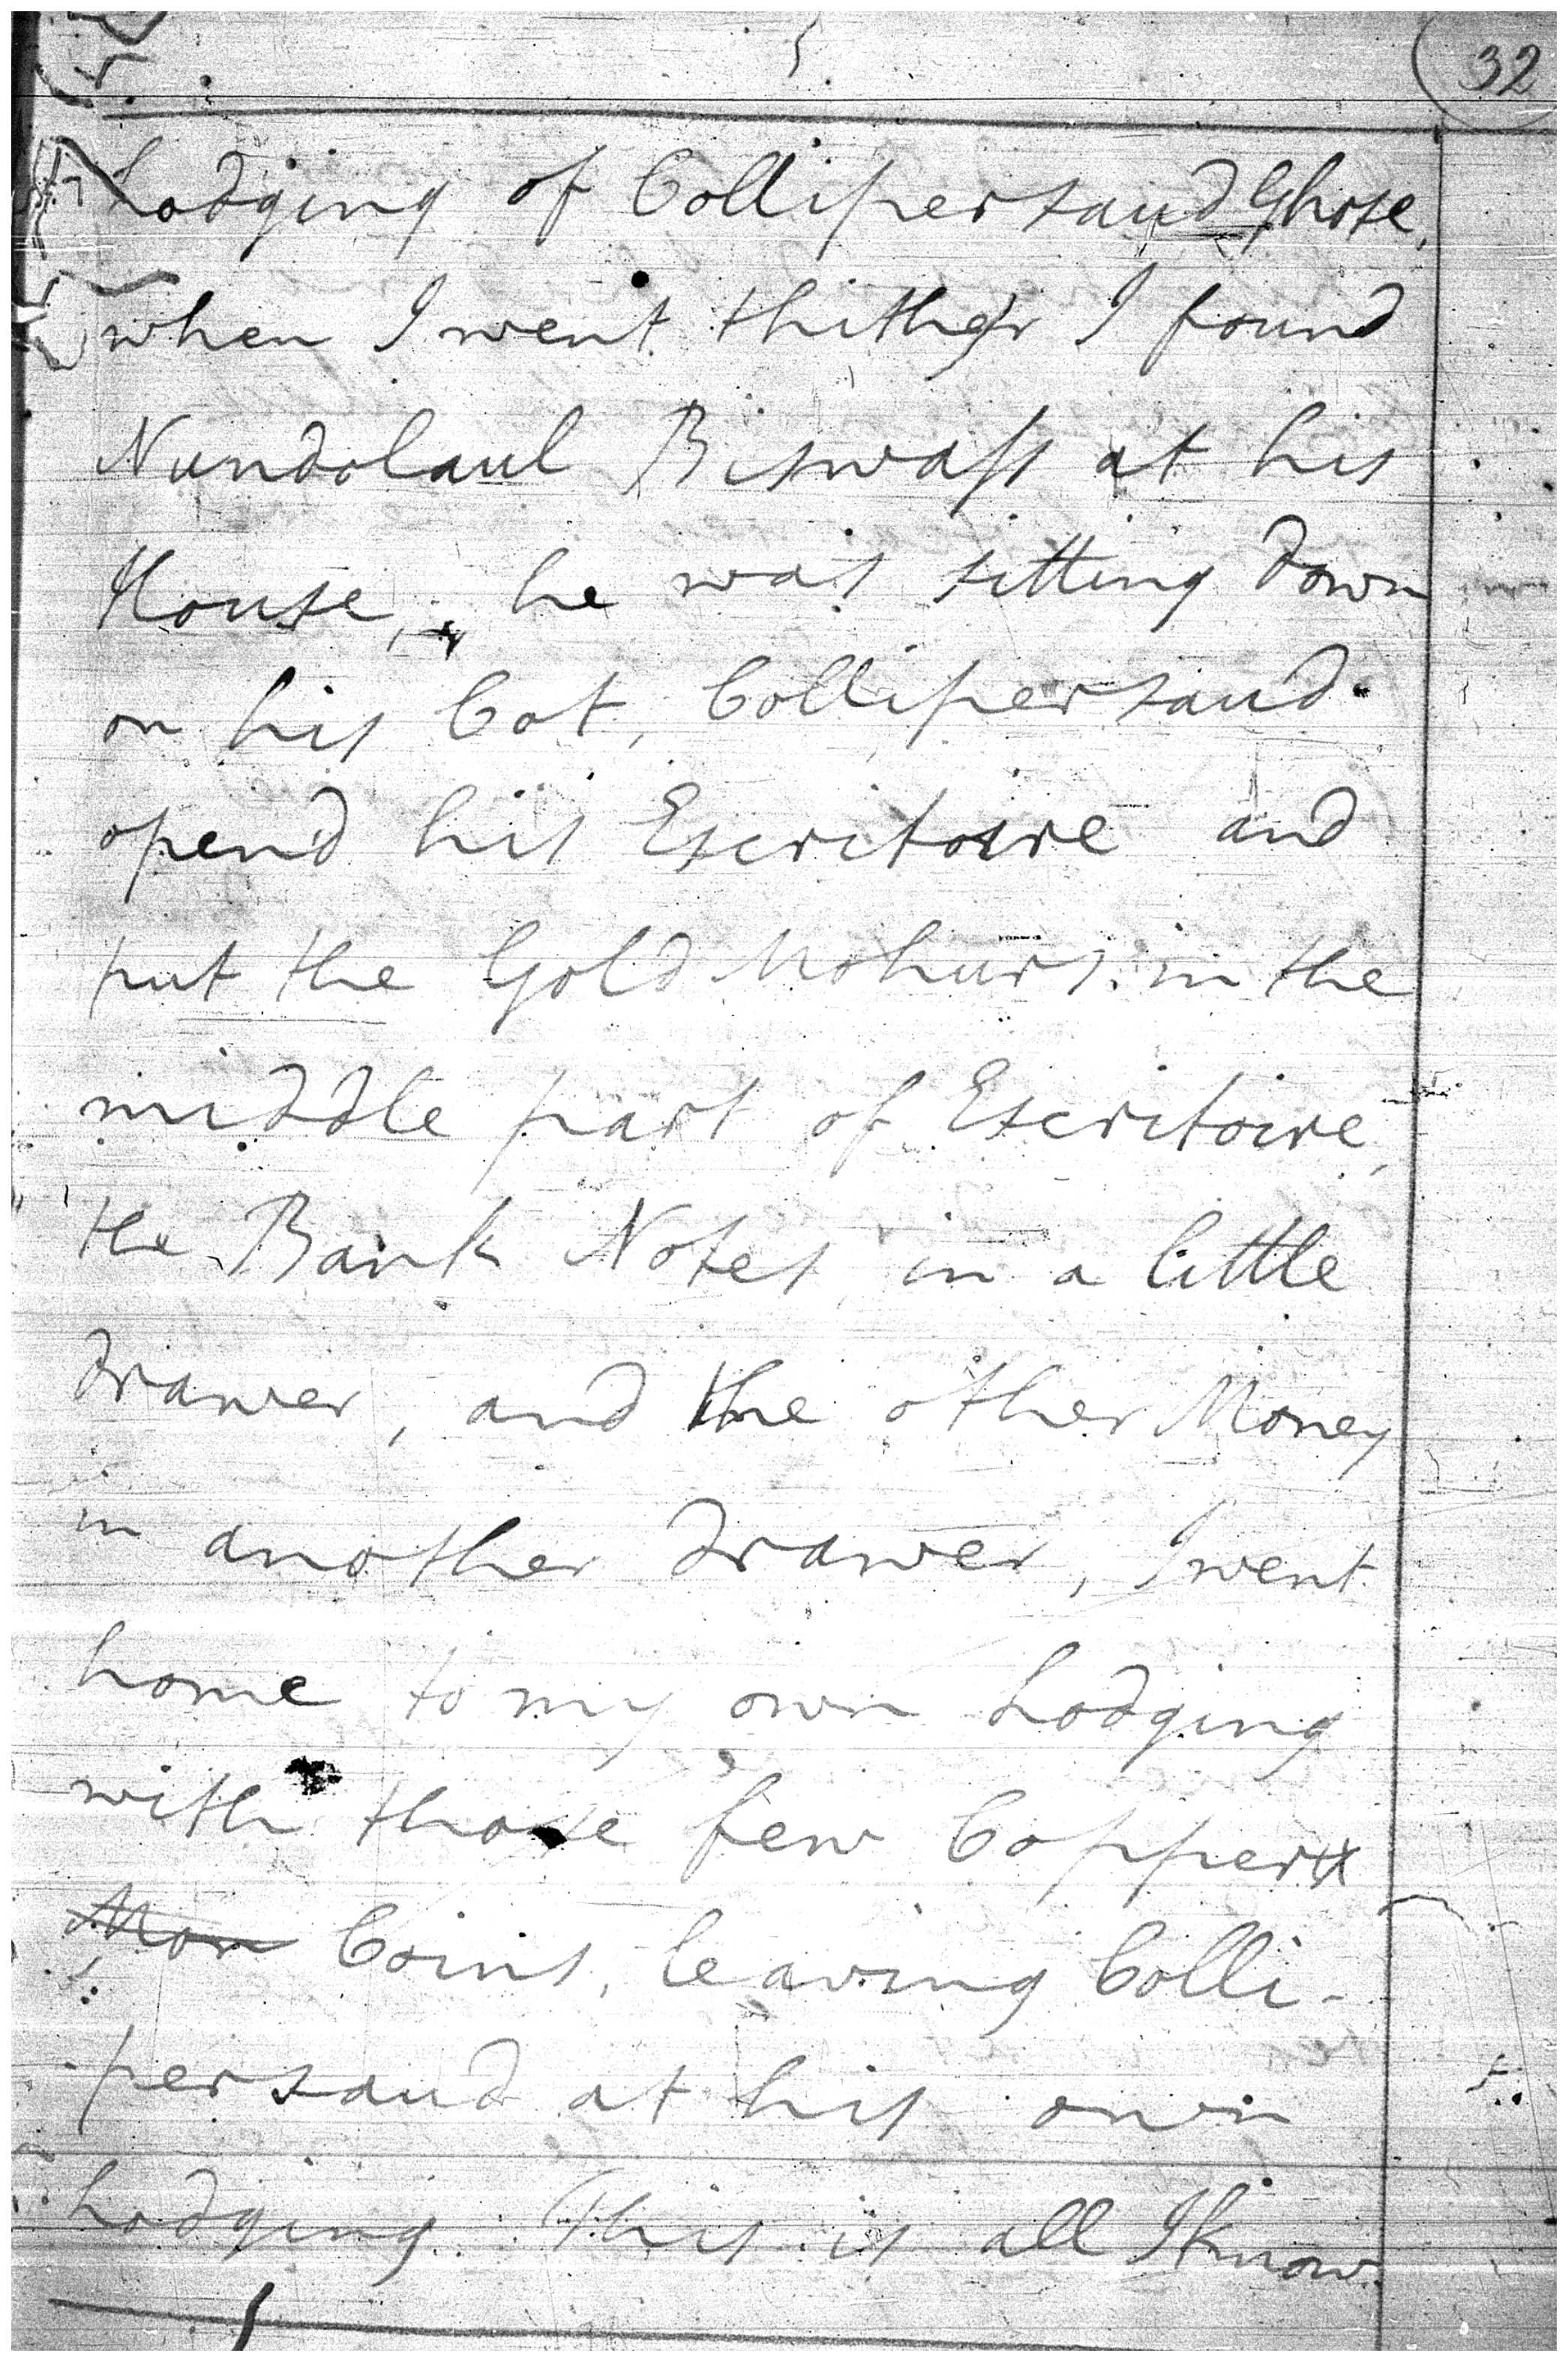 32
Lodging of Collipersaud Ghose,
when I went thither I found
Nundolaul Biswass at his
House, he was sitting down
on his Cot, Collipersaud
opend his Escritoire and
put the Gold Mohurs in the
middle part of Escritoire,
the Bank Notes in a little
drawer, and the other Money
in another drawer, I went
home to my own Lodging
with those few Copper
Mon Coins, leaving Colli-
persaud at his own
Lodging. This is all I know.